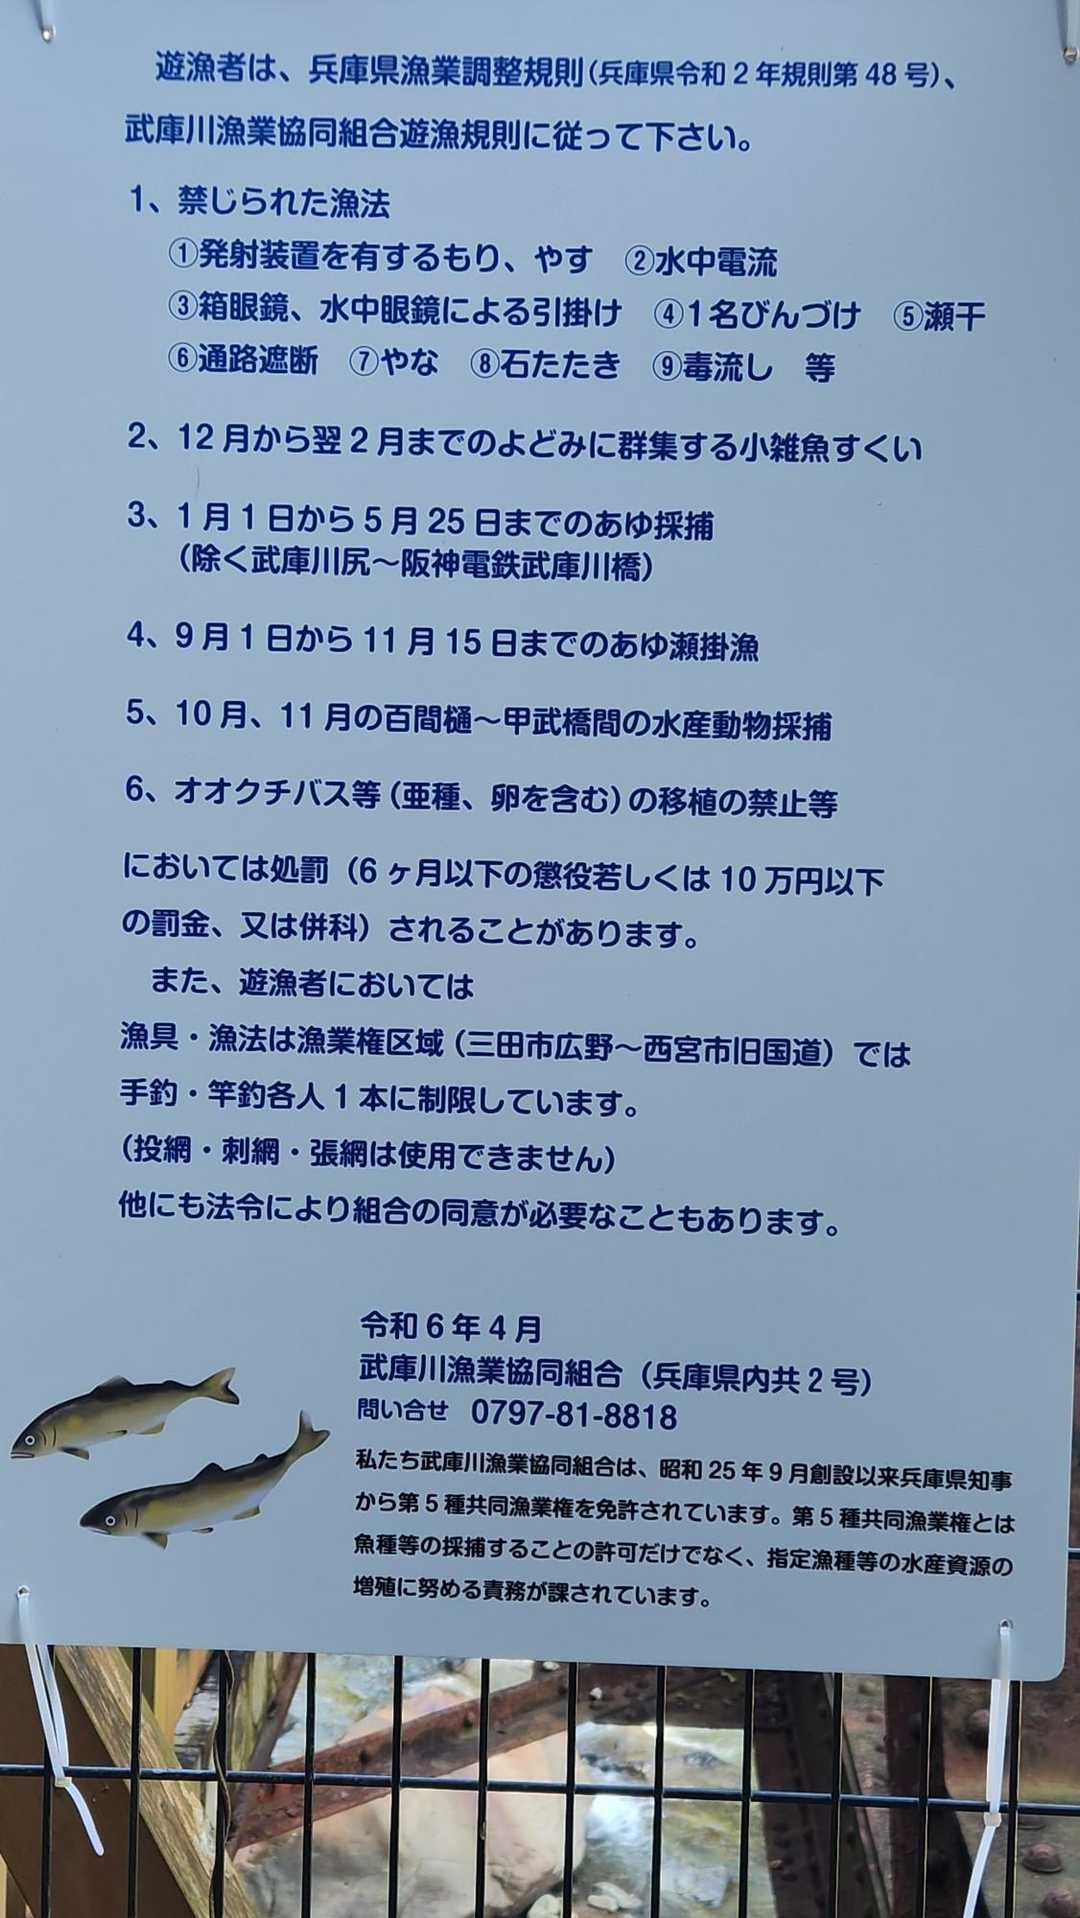 遊漁者は、兵庫県漁業調整規則(兵庫県令和2年規則第48号)、
武庫川漁業協同組合遊漁規則に従って下さい。
1、禁じられた漁法
①発射装置を有するもり、やす ②水中電流
③箱眼鏡、水中眼鏡による引掛け ④1名びんづけ ⑤瀬干
⑥通路遮断 ⑦やな ⑧石たたき ⑨毒流し 等
2、12月から翌2月までのよどみに群集する小雑魚すくい
3、1月1日から5月25日までのあゆ採捕
(除く武庫川尻〜阪神電鉄武庫川橋)
4、9月1日から11月15日までのあゆ瀬掛漁
5、10月、11月の百間樋〜甲武橋間の水産動物採捕
6、オオクチバス等(亜種、卵を含む)の移植の禁止等
においては処罰(6ヶ月以下の懲役若しくは10万円以下
の罰金、又は併科)されることがあります。
また、遊漁者においては
漁具・漁法は漁業権区域(三田市広野〜西宮市旧国道)では
手釣・竿釣各人1本に制限しています。
(投網・刺網・張網は使用できません)
他にも法令により組合の同意が必要なこともあります。
令和6年4月
武庫川漁業協同組合(兵庫県内共2号)
問い合せ 0797-81-8818
私たち武庫川漁業協同組合は、昭和25年9月創設以来兵庫県知事
から第5種共同漁業権を免許されています。第5種共同漁業権とは
魚種等の採捕することの許可だけでなく、指定漁種等の水産資源の
増殖に努める責務が課されています。